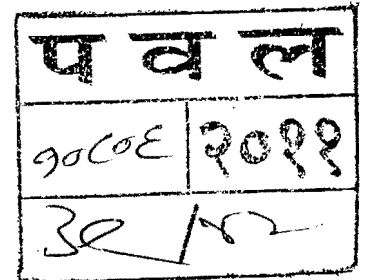 प व ल
१०८०६ २०११